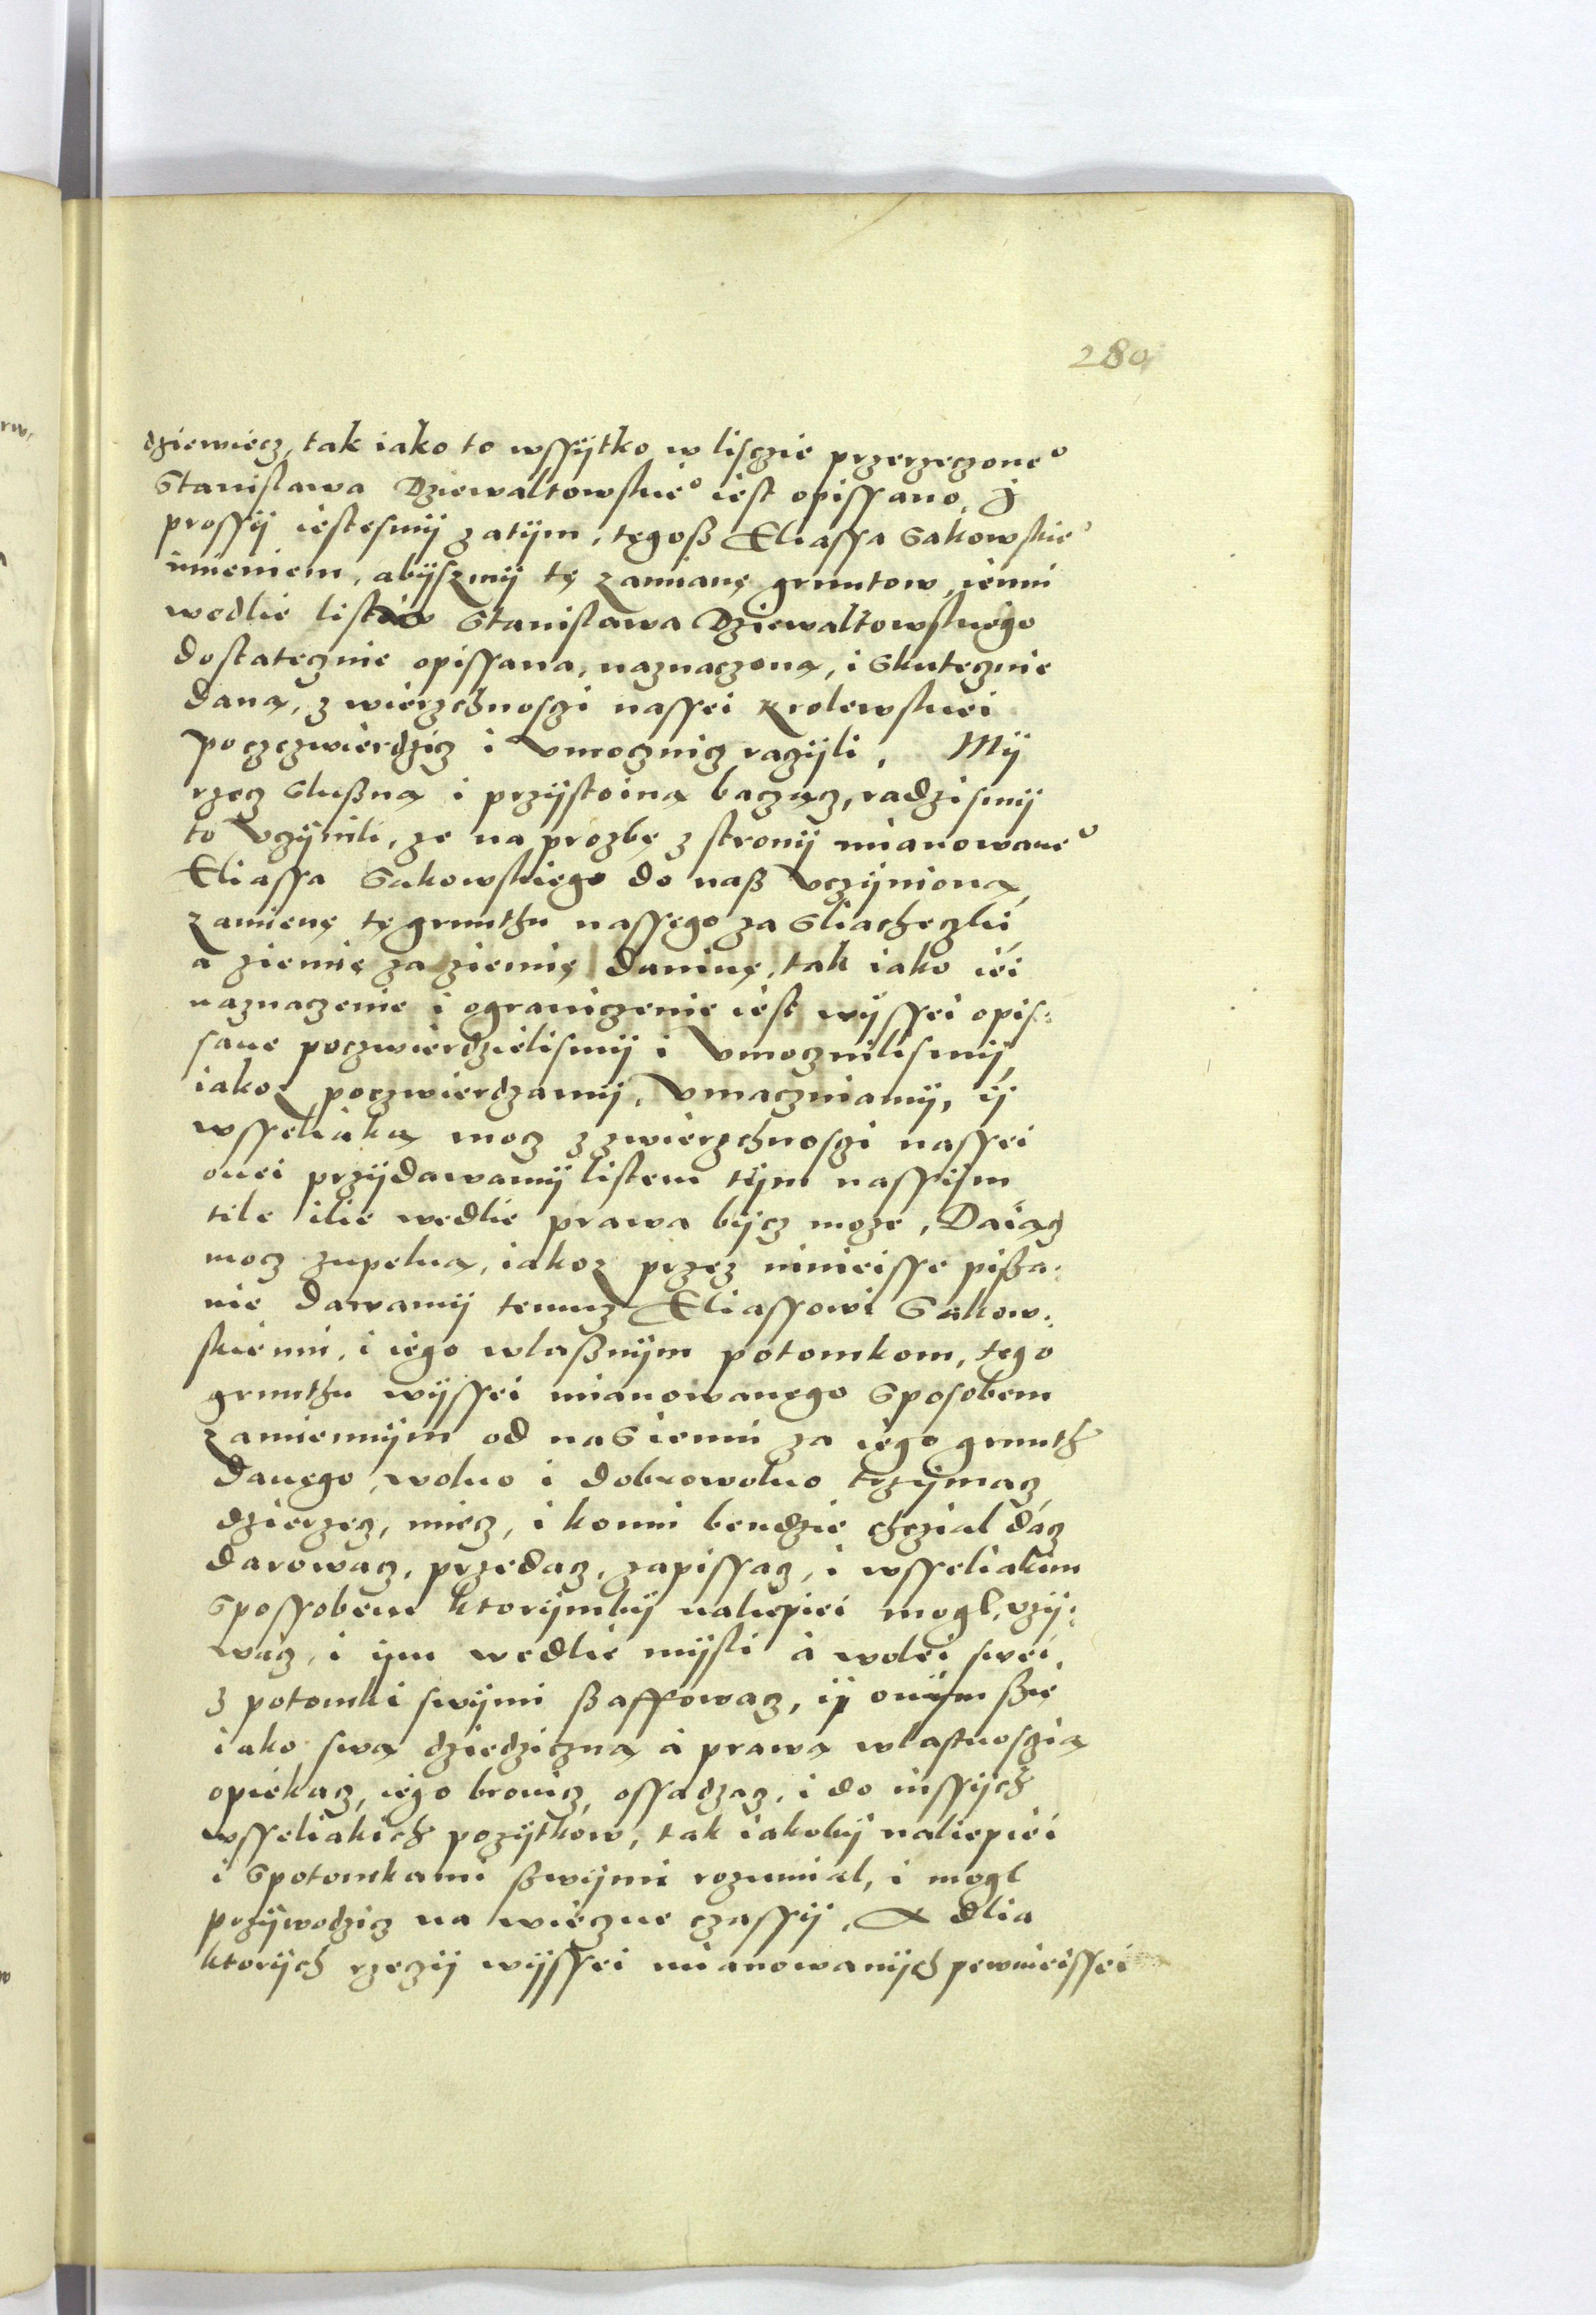 280
dziewiecz, tak iako to wssÿtko w lisczie przerzeczone°
Stanislawa Dziewaltowskie° iest opissano. J
prossÿ iestesmÿ zatÿm, tegoß Eliassa Sakowskie°
imieniem, abÿszmÿ tę zamianę gruntow, iemu
wedlie listów Stanislawa Dziewaltowskiego
dostatecznie opissana, naznaczoną, i skutecznie
daną, z wierzchnosczi nassei krolewskiei
poczczwierdzicz i vmocznicz raczÿli, MÿY
rzecz slußną i przÿstoiną bacząc, radzismÿ
to vczÿnili, ze na prozbę z stronÿ mianowane°
Eliassa Sakowskiego do naß vczÿnioną,
zamienę tę grunthu nassego za sliacheczki
a ziemię za ziemię daninę, tak iako iéi
naznaczenie i ograniczenie iest wÿssei opis:
sane poczwierdzielismÿ i vmocznilismÿ,
iakoz poczwierdzamÿ, vmaczniamÿ, ÿ
wsseliaką mocz z zwierzchnosczi nassei
onei przÿdawamÿ listem tÿm nassÿm
tile ilie wedlie prawa bÿcz moze, Daiącz
mocz zupelną, iakoz przez ninieisse pißa:
nie dawamÿ temuz Eliassowi Sakow:
skiemu, i iego wlaßnÿm potomkom, tego
grunthu wÿssei mianowanego sposobem
zamiennÿm od nas iemu za iego grunth
danego, wolno i dobrowolno trzÿmacz,
dzierzecz, miecz, i komu bendzie chczial dácz
darowacz, przedacz, zapissacz, i wsseliakim
spossobem ktorÿmbÿ naliepiei mogl, vzÿ:
wacz, i ÿm wedlie mÿsli á wolei swéi,
z potomki swÿmi ßaffowacz, ÿ onÿm ßię
iako swą dziedziczną á prawą wlastnosczią
opiekacz, iego bronicz, ossadzacz, i do inssÿch
wsseliakich pozÿtkow, tak iakobÿ naliepiéi
i spotomkami ßwÿmi rozumial, i mogl
przÿwodzicz na wieczne czassÿ. A dlia
ktorÿch rzeczÿ wÿssei mianowanÿch pewnieissei